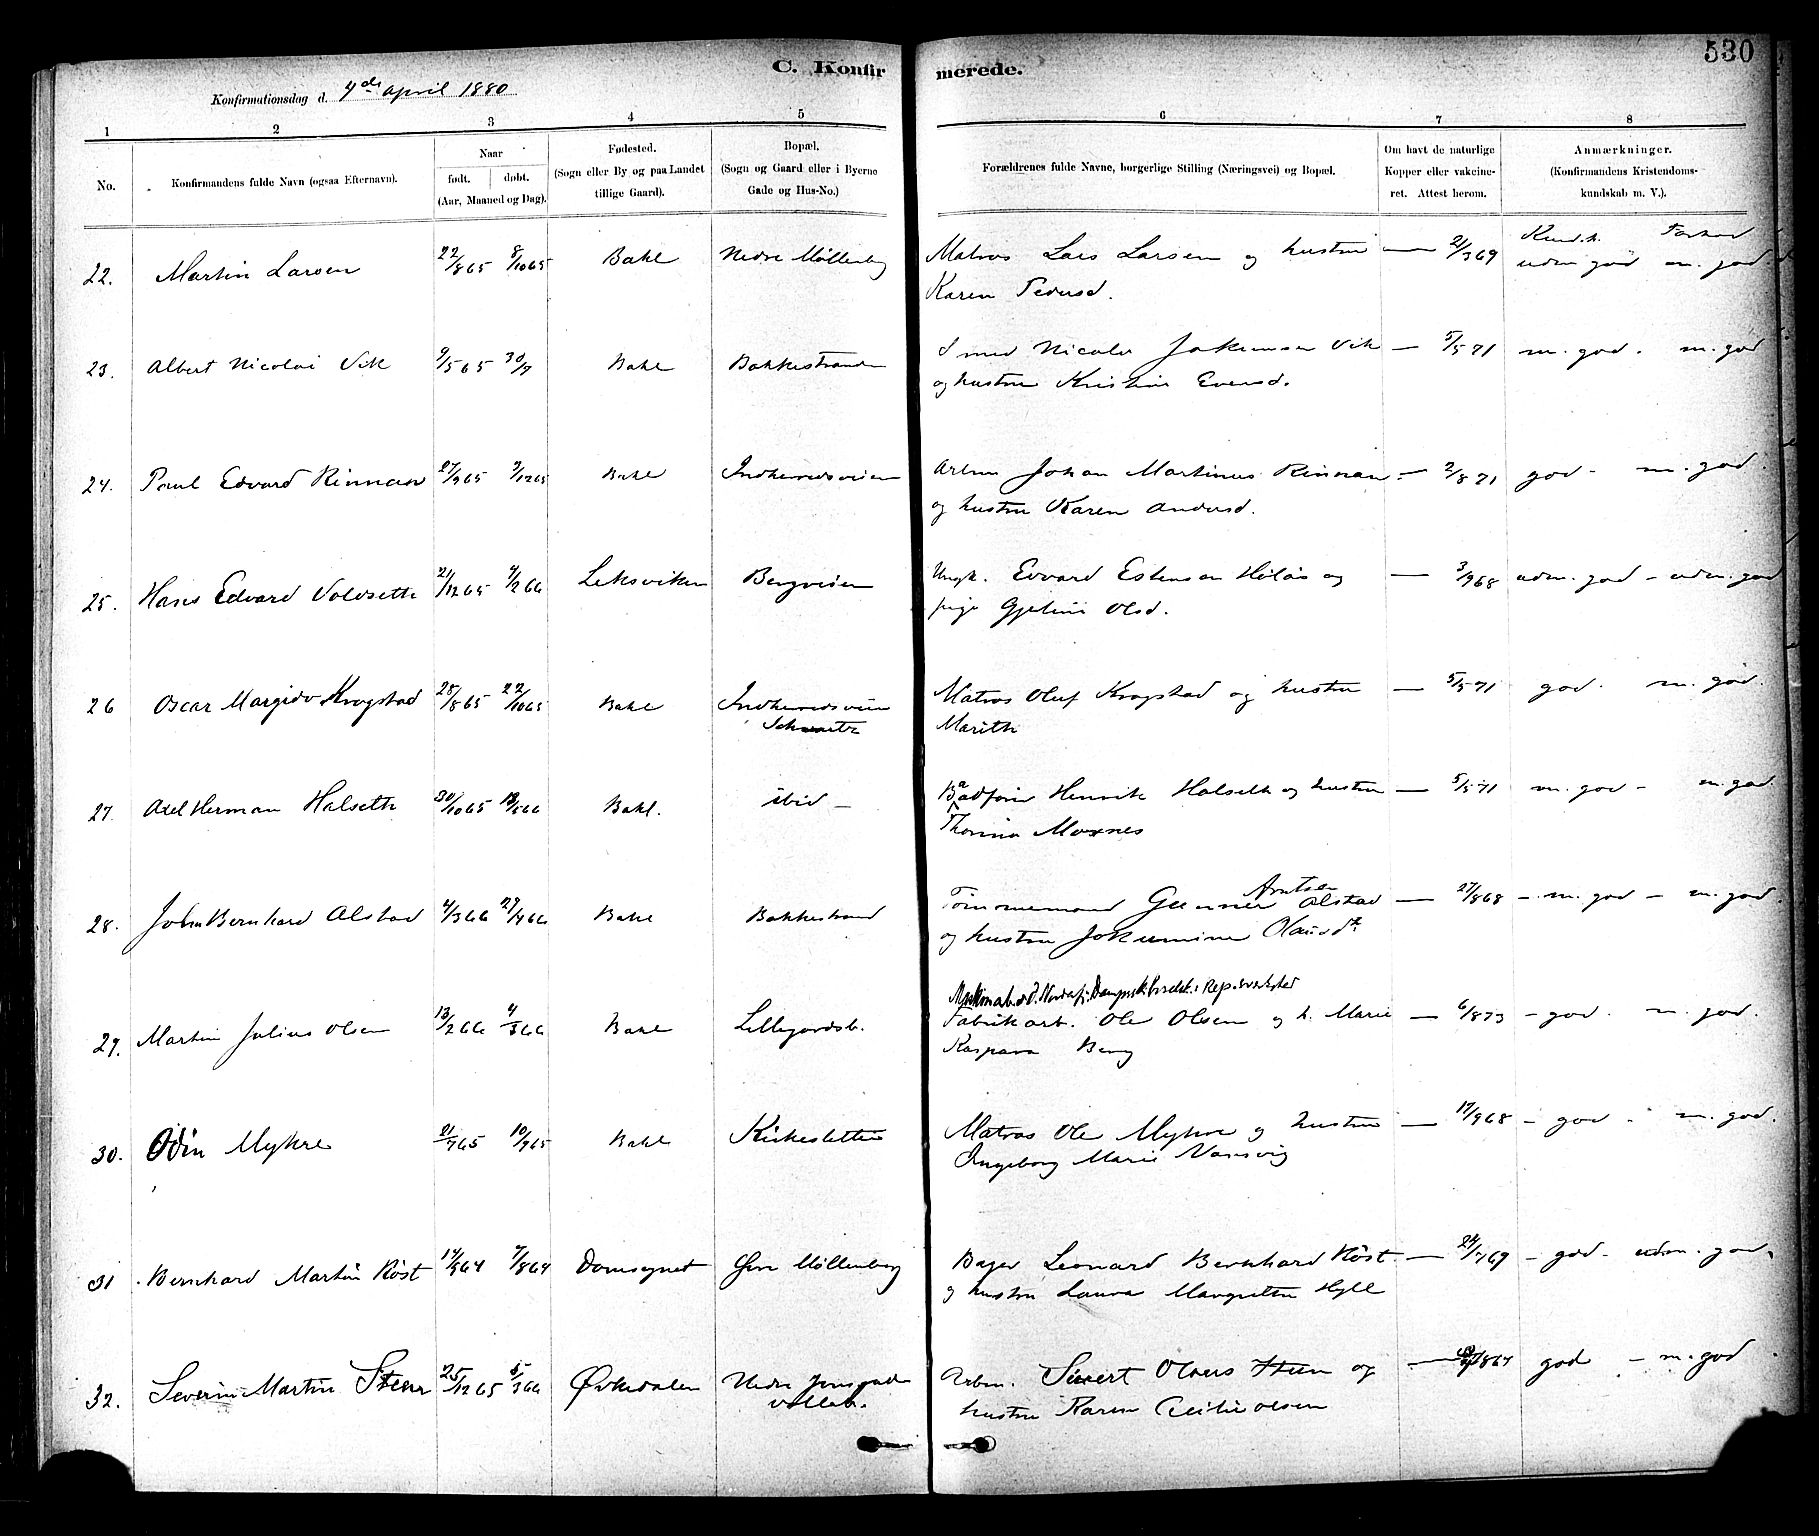 530
C. Konfirmerede.
Konfirmationsdag d. 4de april 1880
1 2 3 4 5 6 7 8
No.
Konfirmandens fulde Navn (ogsaa Efternavn).
Naar
født. døbt.
(Aar, Maaned og Dag).
Fødested.
(Sogn eller By og paa Landet
tillige Gaard).
Bopæl.
(Sogn og Gaard eller i Byerne
Gade og Hus-No.)
Forældrenes fulde Navne, borgerlige Stilling (Næringsvei) og Bopæl.
Om havt de naturlige
Kopper eller vakcine-
ret. Attest herom.
Anmærkninger.
(Konfirmandens Kristendoms-
kundskab m. V.).
22. Martin Larsen 22/8 65 8/10 65 Bakl Nedre Møllenberg Matros Lars Larsen og hustru — 21/3 69 udm god m. god
Karen Pedersd.
23. Albert Nicolai Vik 9/5 65 30/7 Bakl Bakkestranden Smed Nicolai Vik — 5/5 71 m. god. m. god
og hustru Kristine Evensd.
24. Paul Edvard Rinnan 27/9 65 3/12 65 Bakl Indherredsveien Arbm Johan Martinus Rinnan — 2/8 71 god - m. god.
og hustru Karen Andersd.
25. Hans Edvard Voldseth 21/12 65 4/2 66 Leksviken Bergveien Ungk. Edvard Estensen og — 3/9 68 udm. god - udm. god
pige Olsd.
26 Oscar Margido Krogstad 28/8 65 22/10 65 Bakl Indherredsveien Matros Oluf Krogstad og hustru — 5/5 71 god. m. god.
Marith
27. Axel Herman Halseth 30/10 65 13/5 66 Bakl. ibid — Henrik Halseth og hustru — 5/5 71 m. god - m. god.
Moxnes
28. John Bernhard Alstad 4/3 66 29/4 66 Bakl Bakkestrand Tømmermand Gunner Arntsen Alstad — 27/8 68 - m. god - m. god.
og hustru Jokumine
29. Martin Julius Olsen 13/2 66 4/3 66 Bakl Lillegårdsb. Fabrikarb. Ole Olsen og h. Marie — 6/8 73 - god. m. god.
Kaspara Berg
30. Odin Myhre 21/7 65 10/9 65 Bakl Kirkesletten Matros Ole Myhre og hustru — 17/9 68 - god - m. god.
Ingeborg Marie
31. Bernhard Martin Röst Domsognet Øvre Møllenberg Bager Leonard Bernhard Röst — 24/7 69 - god - udm. god.
og hustru Laura Margrethe Hyll
32. Severin Martin Steen 25/12 65 5/3 66 Ørkedalen Nedre Arbm. Sivert Steen og — god - m. god
hustru Karen Cecilie Olsen